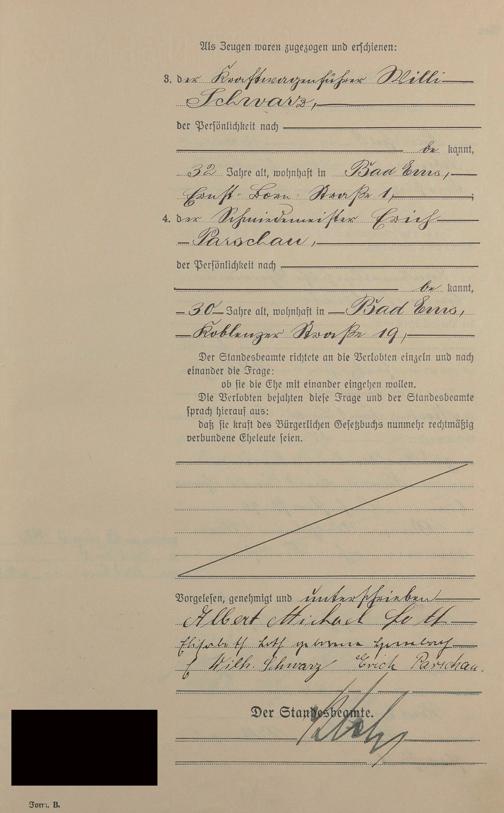 Als Zeugen waren zugezogen und erschienen:
3. der Kraftwagenführer Willi
Schwarz,
der Persönlichkeit nach
be kannt,
32 Jahre alt, wohnhaft in Bad Ems,
Ernst-Born-Straße 1,
4. der Schmiedemeister Erich
Parschau,
der Persönlichkeit nach
be kannt,
30 Jahre alt, wohnhaft in Bad Ems,
Koblenzer Straße 19,
Der Standesbeamte richtete an die Verlobten einzeln und nach
einander die Frage:
ob sie die Ehe mit einander eingehen wollen.
Die Verlobten bejahten diese Frage und der Standesbeamte
sprach hierauf aus:
daß sie kraft des Bürgerlichen Gesetzbuchs nunmehr rechtmäßig
verbundene Eheleute seien.
Vorgelesen, genehmigt und unterschrieben
Albert Michael
Elisabeth geborene
Wilh. Schwarz Erich Parschau.
Der Standesbeamte.
Form. B.